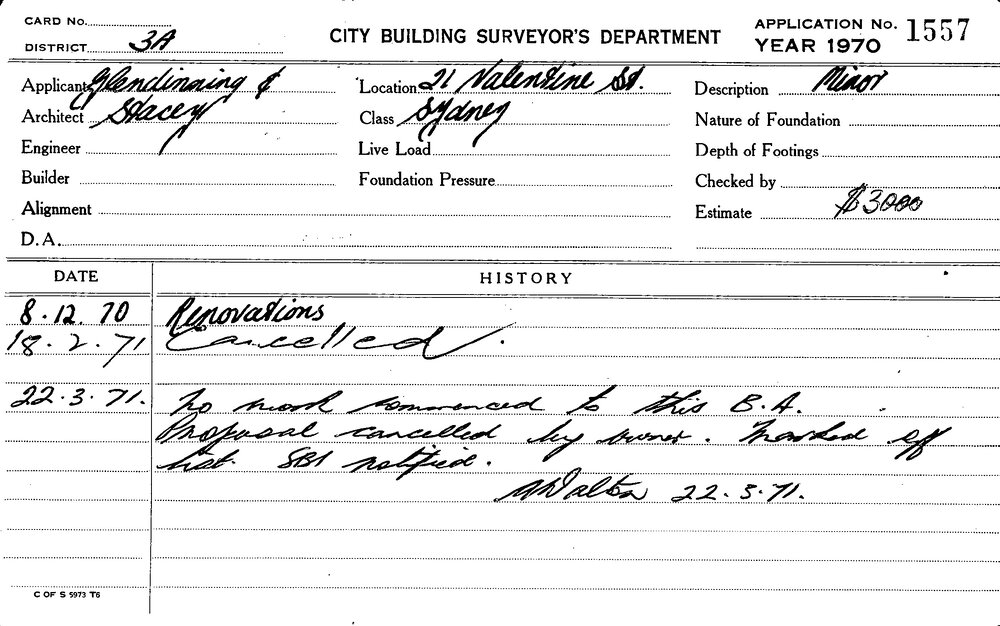 CARD No.
DISTRICT 3A
CITY BUILDING SURVEYOR'S DEPARTMENT
APPLICATION No. 1557
YEAR 1970
Applicant Glendinning &
Architect Stacey
Engineer
Builder
Alignment
D.A.
Location 21 Valentine St.
Class Sydney
Live Load
Foundation Pressure
Description Minor
Nature of Foundation
Depth of Footings
Checked by
Estimate $3000
DATE HISTORY
8.12.70 Renovations
18.2.71 Cancelled.
22.3.71. No work commenced to this B.A.
Proposal cancelled by owner. Marked off
list. SBI notified.
Walton 22.3.71.
C OF S 5973 T6